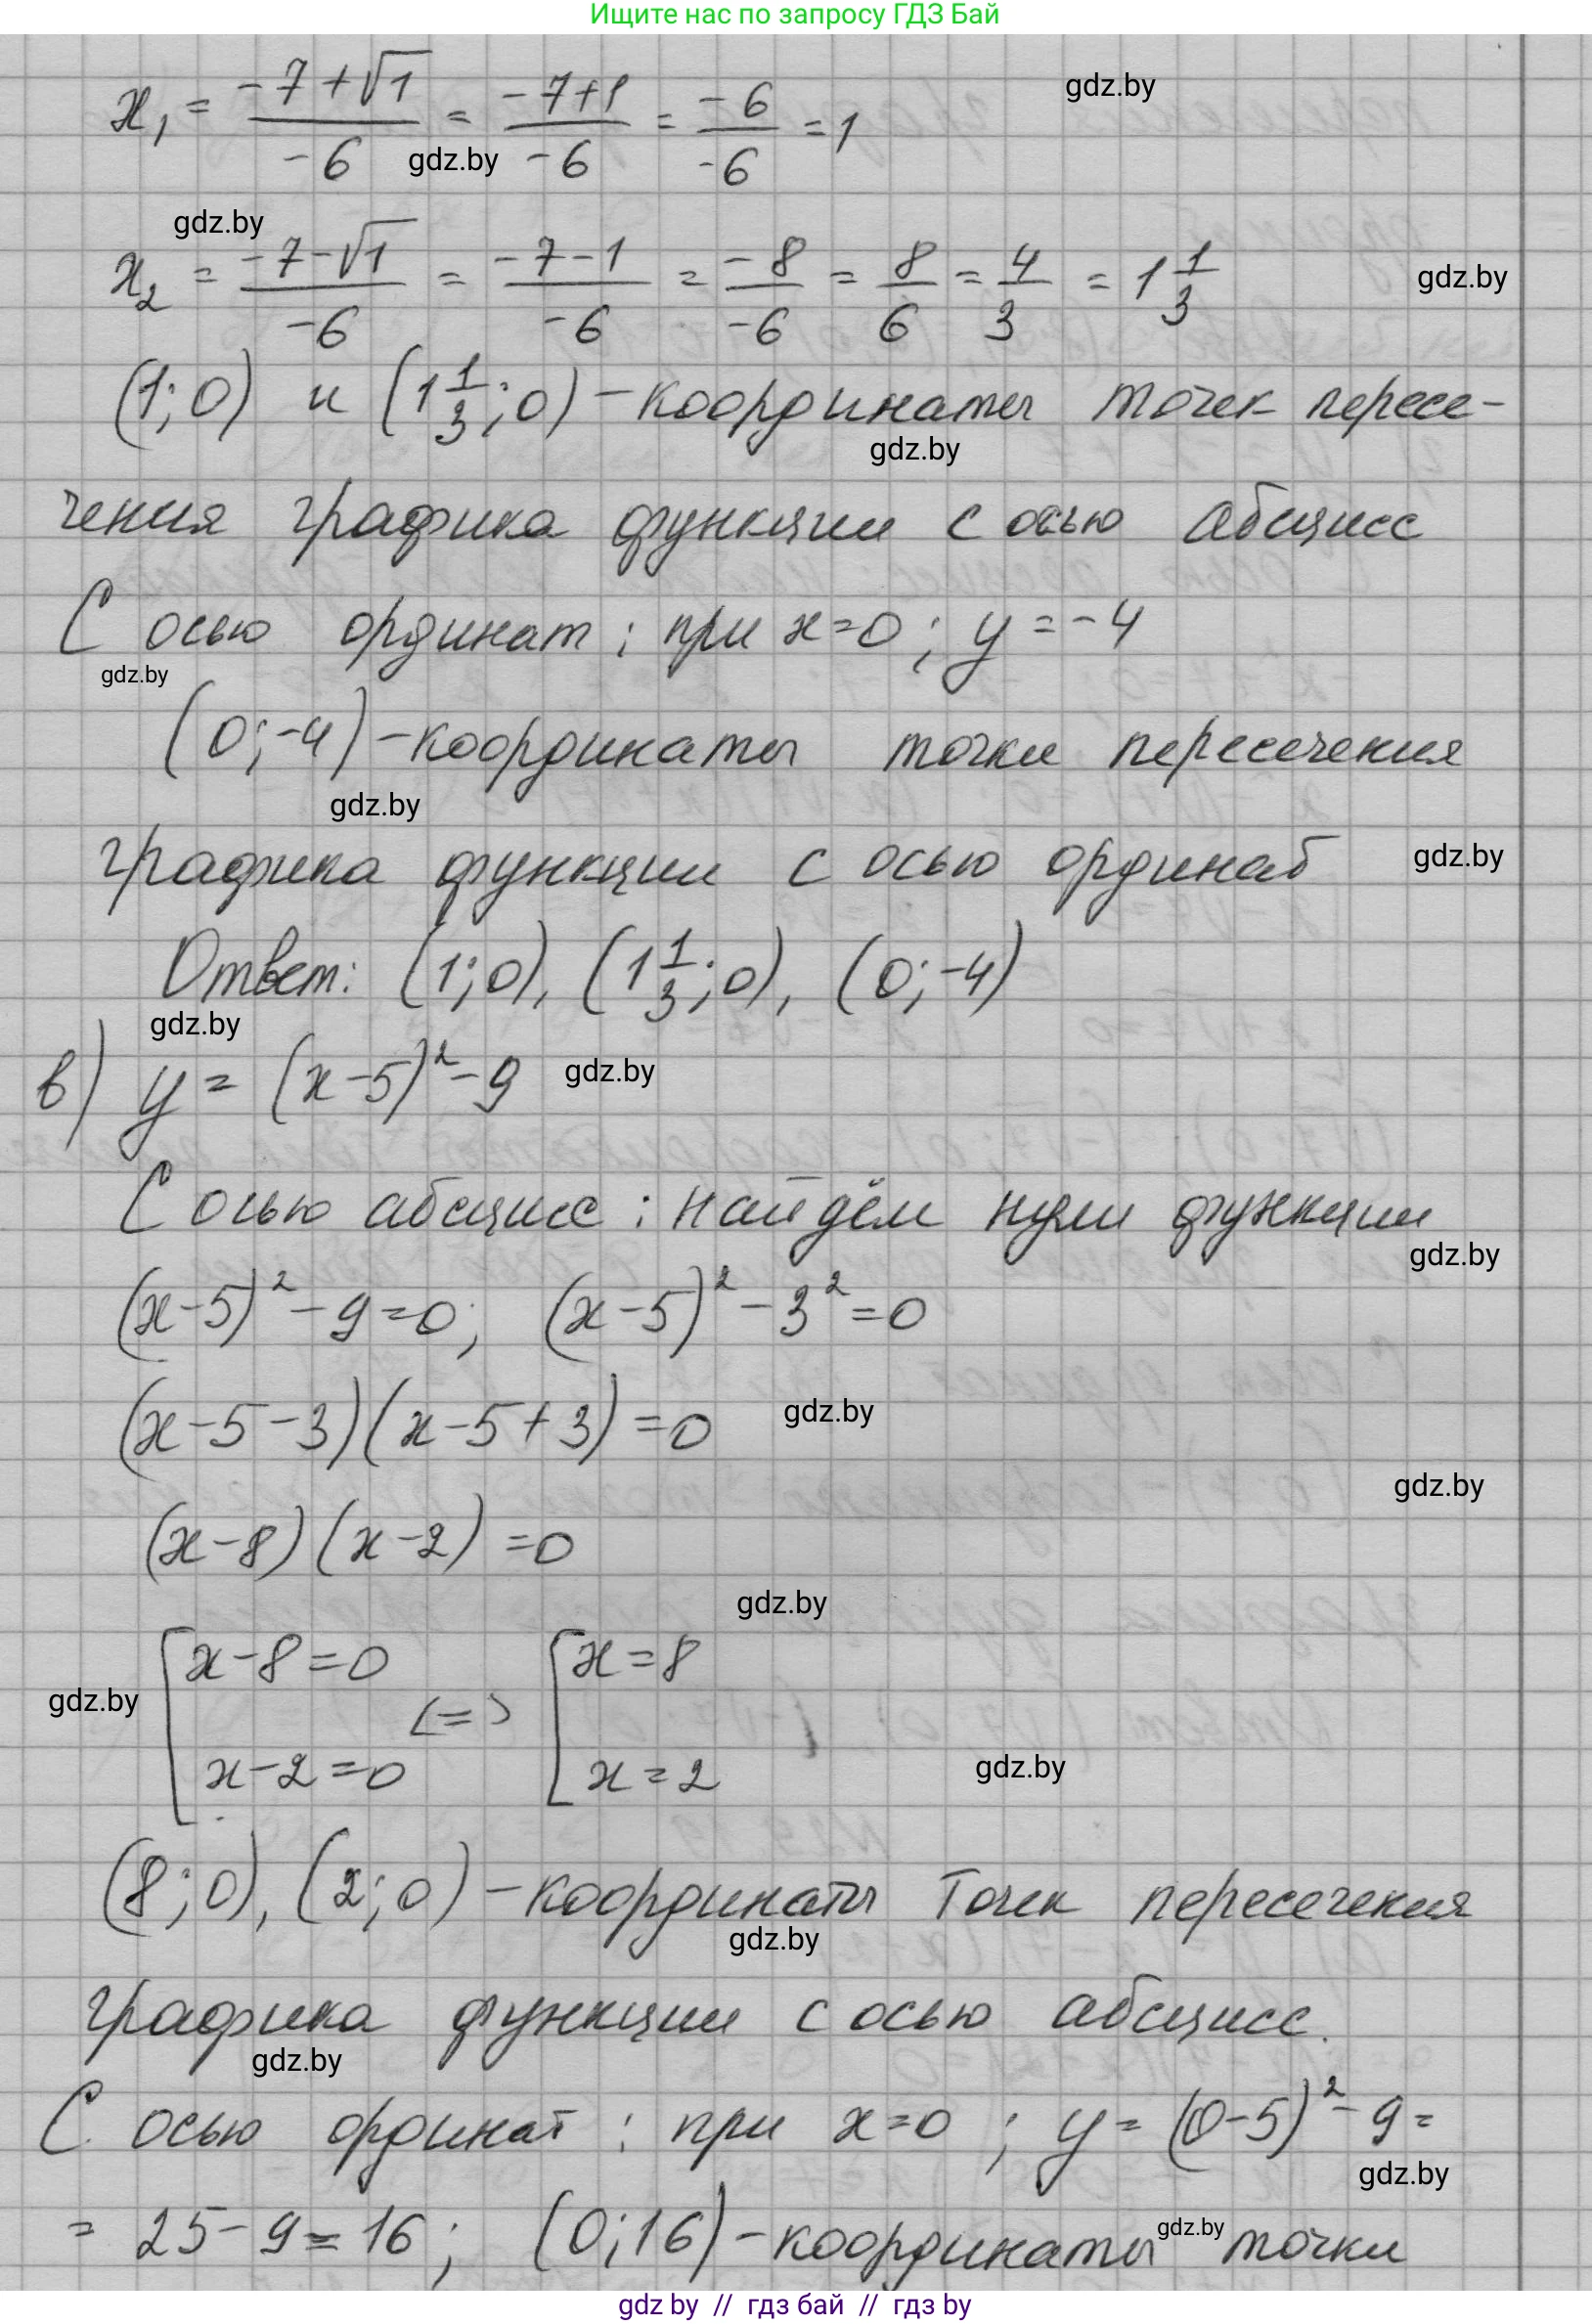 Ищите нас по запросу ГДЗ Бай
x₁ = (-7+√1)/(-6) = (-7+1)/(-6) = (-6)/(-6) = 1
gdz.by
gdz.by
gdz.by
x₂ = (-7-√1)/(-6) = (-7-1)/(-6) = (-8)/(-6) = 8/6 = 4/3 = 1 1/3
gdz.by
(1; 0) и (1 1/3; 0) - координаты точек пересе-
gdz.by
чения графика функции с осью абсцисс
С осью ординат ; при x=0 ; y = -4
gdz.by
(0; -4) - координаты точки пересечения
gdz.by
графика функции с осью ординат
gdz.by
Ответ: (1; 0), (1 1/3; 0), (0; -4)
gdz.by
в) y = (x-5)² - 9
gdz.by
С осью абсцисс : найдём нули функции
gdz.by
(x-5)² - 9 = 0; (x-5)² - 3² = 0
(x-5-3)(x-5+3) = 0
gdz.by
gdz.by
(x-8)(x-2) = 0
gdz.by
[x-8=0 <=> [x=8
gdz.by
x-2=0 x=2
gdz.by
(8; 0), (2; 0) - координаты точек пересечения
gdz.by
графика функции с осью абсцисс.
gdz.by
С осью ординат : при x=0 ; y = (0-5)² - 9 =
gdz.by
= 25 - 9 = 16 ; (0; 16) - координаты точки
gdz.by
gdz by // гдз бай // гдз by